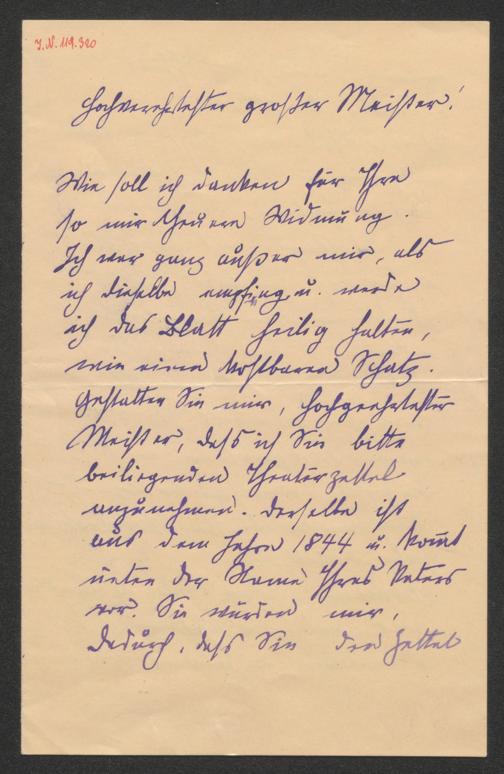 J.N. 119.320
Hochverehrtester großer Meister!
Wie soll ich danken für Ihre
so mir theuere Widmung.
Ich war ganz außer mir, als
ich dieselbe empfing u. werde
ich das Blatt heilig halten,
wie einen kostbaren Schatz.
Gestatten Sie mir, hochgeehrtester
Meister, dass ich Sie bitte
beiliegenden Theaterzettel
anzunehmen. Derselbe ist
aus dem Jahre 1844 u. kommt
unten der Name Ihres Vaters
vor. Sie würden mir,
dadurch, dass Sie den Zettel